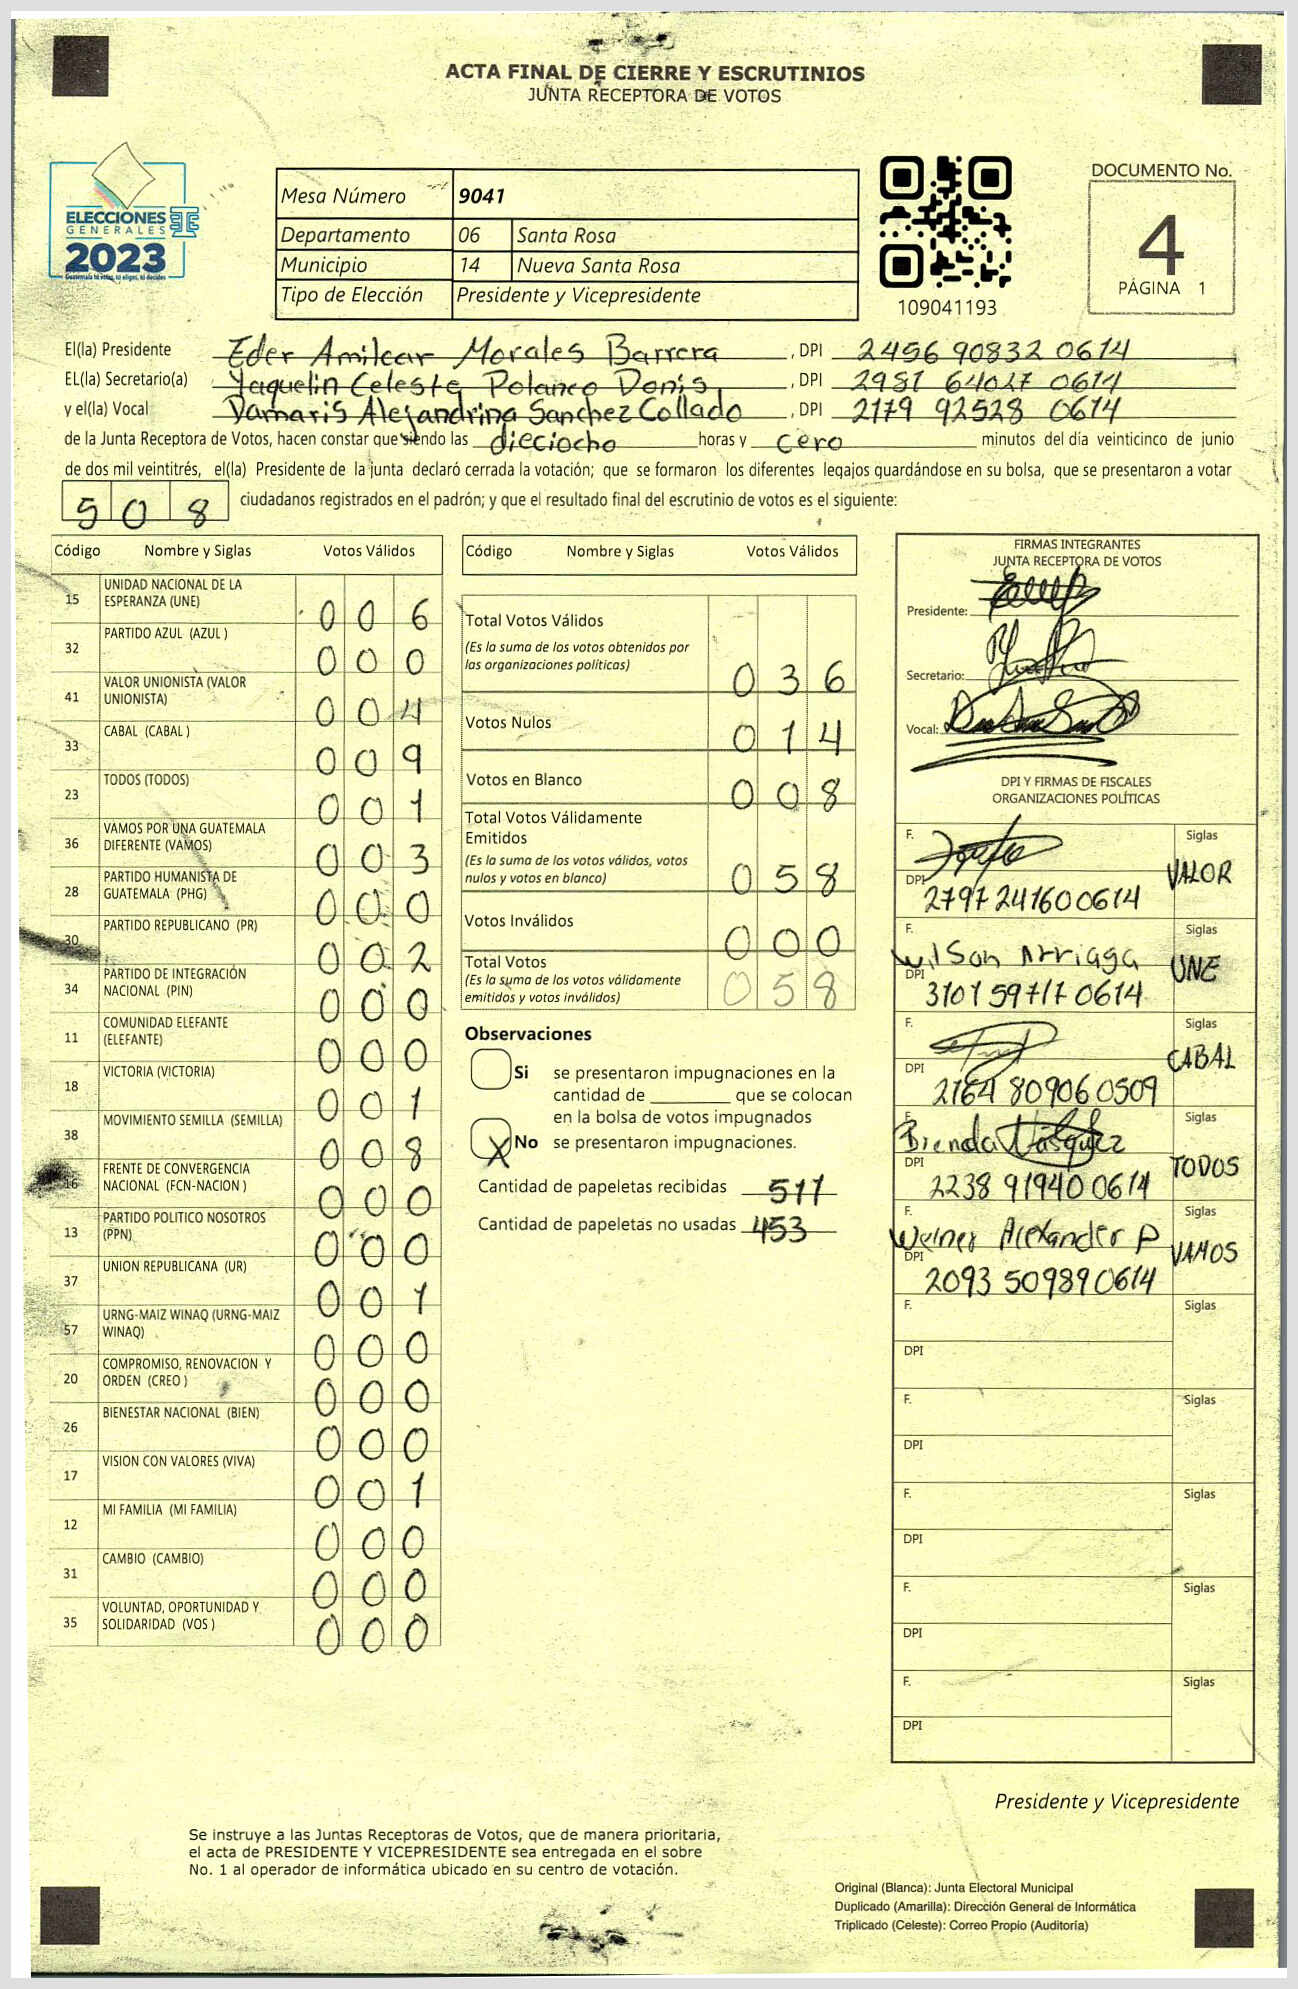 ACTA FINAL DE CIERRE Y ESCRUTINIOS
JUNTA RECEPTORA DE VOTOS
ELECCIONES
GENERALES
2023
Guatemala tú votas, tú eliges, tú decides
Mesa Número 9041
Departamento 06 Santa Rosa
Municipio 14 Nueva Santa Rosa
Tipo de Elección Presidente y Vicepresidente
109041193
DOCUMENTO No.
4
PÁGINA 1
El(la) Presidente Eder Amilcar Morales Barrera , DPI 2456 90832 0614
EL(la) Secretario(a) Yaquelin Celeste Polanco Donis , DPI 2981 64027 0614
y el(la) Vocal Damaris Alejandrina Sanchez Collado , DPI 2179 92528 0614
de la Junta Receptora de Votos, hacen constar que siendo las dieciocho horas y cero minutos del día veinticinco de junio
de dos mil veintitrés, el(la) Presidente de la junta declaró cerrada la votación; que se formaron los diferentes legajos guardándose en su bolsa, que se presentaron a votar
508 ciudadanos registrados en el padrón; y que el resultado final del escrutinio de votos es el siguiente:
Código Nombre y Siglas Votos Válidos
15 UNIDAD NACIONAL DE LA ESPERANZA (UNE) 006
32 PARTIDO AZUL (AZUL ) 000
41 VALOR UNIONISTA (VALOR UNIONISTA) 004
33 CABAL (CABAL ) 009
23 TODOS (TODOS) 001
36 VAMOS POR UNA GUATEMALA DIFERENTE (VAMOS) 003
28 PARTIDO HUMANISTA DE GUATEMALA (PHG) 000
30 PARTIDO REPUBLICANO (PR) 002
34 PARTIDO DE INTEGRACIÓN NACIONAL (PIN) 000
11 COMUNIDAD ELEFANTE (ELEFANTE) 000
18 VICTORIA (VICTORIA) 001
38 MOVIMIENTO SEMILLA (SEMILLA) 008
16 FRENTE DE CONVERGENCIA NACIONAL (FCN-NACION ) 000
13 PARTIDO POLITICO NOSOTROS (PPN) 000
37 UNION REPUBLICANA (UR) 001
57 URNG-MAIZ WINAQ (URNG-MAIZ WINAQ) 000
20 COMPROMISO, RENOVACION Y ORDEN (CREO ) 000
26 BIENESTAR NACIONAL (BIEN) 000
17 VISION CON VALORES (VIVA) 001
12 MI FAMILIA (MI FAMILIA) 000
31 CAMBIO (CAMBIO) 000
35 VOLUNTAD, OPORTUNIDAD Y SOLIDARIDAD (VOS ) 000
Código Nombre y Siglas Votos Válidos
Total Votos Válidos
(Es la suma de los votos obtenidos por
las organizaciones políticas) 036
Votos Nulos 014
Votos en Blanco 008
Total Votos Válidamente
Emitidos
(Es la suma de los votos válidos, votos
nulos y votos en blanco) 058
Votos Inválidos 000
Total Votos
(Es la suma de los votos válidamente
emitidos y votos inválidos) 058
Observaciones
Si se presentaron impugnaciones en la
cantidad de ________ que se colocan
en la bolsa de votos impugnados
X No se presentaron impugnaciones.
Cantidad de papeletas recibidas 511
Cantidad de papeletas no usadas 453
FIRMAS INTEGRANTES
JUNTA RECEPTORA DE VOTOS
Presidente:
Secretario:
Vocal:
DPI Y FIRMAS DE FISCALES
ORGANIZACIONES POLÍTICAS
F. Siglas VALOR
DPI 2797 24160 0614
F. Wilson Arriaga Siglas UNE
DPI 3101 59717 0614
F. Siglas CABAL
DPI 2164 80906 0509
F. Brenda Vásquez Siglas TODOS
DPI 2238 91940 0614
F. Welner Alexander P Siglas VAMOS
DPI 2093 50989 0614
F. Siglas
DPI
F. Siglas
DPI
F. Siglas
DPI
F. Siglas
DPI
F. Siglas
DPI
Presidente y Vicepresidente
Se instruye a las Juntas Receptoras de Votos, que de manera prioritaria,
el acta de PRESIDENTE Y VICEPRESIDENTE sea entregada en el sobre
No. 1 al operador de informática ubicado en su centro de votación.
Original (Blanca): Junta Electoral Municipal
Duplicado (Amarilla): Dirección General de Informática
Triplicado (Celeste): Correo Propio (Auditoría)